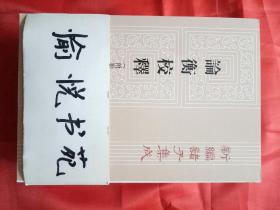 愉悦书苑
論衡校釋
新編諸子集成